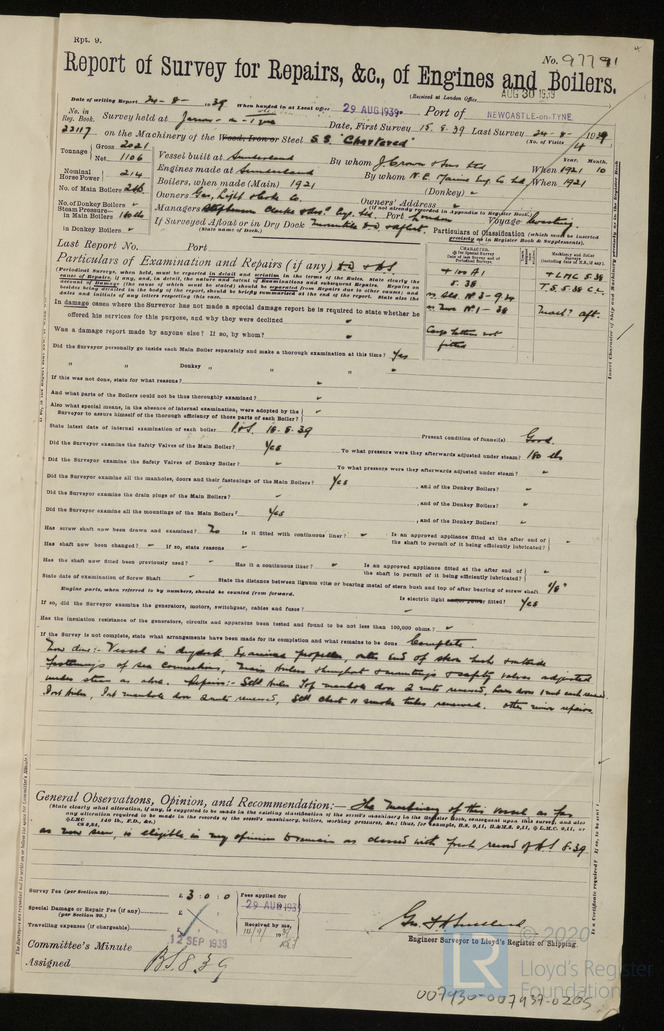 Rpt. 9.
No. 97791
Report of Survey for Repairs, &c., of Engines and Boilers.
(Received at London Office AUG 30 1939
Date of writing Report 24-8-1939 When handed in at Local Office 29 AUG 1939 Port of NEWCASTLE-on-TYNE
No. in Reg. Book. Survey held at Jarrow-on-Tyne Date, First Survey 15.8.39 Last Survey 24-8-1939
22117 on the Machinery of the Wood, Iron or Steel S.S. "Chartered" (No. of Visits 4
Tonnage Gross 2021 Net 1106
Vessel built at Sunderland By whom J Crown & Sons Ltd When 1921 Year. Month. 10
Nominal Horse Power 214
Engines made at Sunderland By whom N.E. Marine Eng. Co Ltd When 1921
No. of Main Boilers 2 Boilers, when made (Main) 1921 (Donkey) "
No. of Donkey Boilers " Owners Gas, Light & Coke Co. Owners' Address "
(If not already recorded in Appendix to Register Book.)
Steam Pressure in Main Boilers 180 lbs Managers Stephenson Clarke & Assd. Cos. Ltd. Port London Voyage Coasting
in Donkey Boilers " If Surveyed Afloat or in Dry Dock & Afloat
(State name of Dock.)
Particulars of Classification (which must be inserted precisely as in Register Book & Supplements).
Last Report No. Port
Particulars of Examination and Repairs (if any) D.D & BS
CHARACTER.
+ 100 A1
5.38
No. 3-9.34
No. 1-38
Cargo battens not fitted
+ LMC 5.38
T.S. 5.38 C.L.
Mach? aft.
In damage cases where the Surveyor has not made a special damage report he is required to state whether he
offered his services for this purpose, and why they were declined "
Was a damage report made by anyone else? If so, by whom? "
Did the Surveyor personally go inside each Main Boiler separately and make a thorough examination at this time? Yes
" " Donkey " " " " "
If this was not done, state for what reasons? "
And what parts of the Boilers could not be thus thoroughly examined? "
Also what special means, in the absence of internal examination, were adopted by the
Surveyor to assure himself of the thorough efficiency of those parts of each Boiler? "
State latest date of internal examination of each boiler P&S. 18.8.39 Present condition of funnel(s) Good.
Did the Surveyor examine the Safety Valves of the Main Boiler? Yes To what pressure were they afterwards adjusted under steam? 180 lbs
Did the Surveyor examine the Safety Valves of Donkey Boiler? " To what pressure were they afterwards adjusted under steam? "
Did the Surveyor examine all the manholes, doors and their fastenings of the Main Boilers? Yes , and of the Donkey Boilers? "
Did the Surveyor examine the drain plugs of the Main Boilers? " , and of the Donkey Boilers? "
Did the Surveyor examine all the mountings of the Main Boilers? Yes , and of the Donkey Boilers? "
Has screw shaft now been drawn and examined? No Is it fitted with continuous liner? " Is an approved appliance fitted at the after end of the shaft to permit of it being efficiently lubricated? "
Has shaft now been changed? " If so, state reasons "
Has the shaft now fitted been previously used? " Has it a continuous liner? " Is an approved appliance fitted at the after end of the shaft to permit of it being efficiently lubricated? "
State date of examination of Screw Shaft " State the distance between lignum vitæ or bearing metal of stern bush and top of after bearing of screw shaft 1/8"
Engine parts, when referred to by numbers, should be counted from forward. Is electric light fitted? Yes
If so, did the Surveyor examine the generators, motors, switchgear, cables and fuses? "
Has the insulation resistance of the generators, circuits and apparatus been tested and found to be not less than 100,000 ohms? "
If the Survey is not complete, state what arrangements have been made for its completion and what remains to be done Complete.
Now done:- Vessel in drydock Examined propeller, outer end of stern bush & outside
fastenings of sea connections, Main boilers throughout & mountings & safety valves adjusted
under steam as above. Repairs:- Stbd boiler Top manhole door 2 nuts renewed,
Port boiler, manhole door renewed, smoke tubes renewed. Other minor repairs.
General Observations, Opinion, and Recommendation:— The Machinery of this vessel as far
(State clearly what alteration, if any, is suggested to be made in the existing classification of the vessel's machinery in the Register Book, consequent upon this survey, and also
any alteration required to be made in the records of the vessel's machinery, boilers, working pressures, &c.; thus, for example,
as now seen, is eligible in my opinion to remain as classed with fresh record of BS 8.39
Survey Fee (per Section 29) £ 3 : 0 : 0 Fees applied for 29 AUG 1939
Special Damage or Repair Fee (if any) (per Section 29.) £
Travelling expenses (if chargeable) £ Received by me,
Committee's Minute 12 SEP 1939
Engineer Surveyor to Lloyd's Register of Shipping.
Assigned BS 8.39
LR © 2020
Lloyd's Register
Foundation
007930-007937-0205